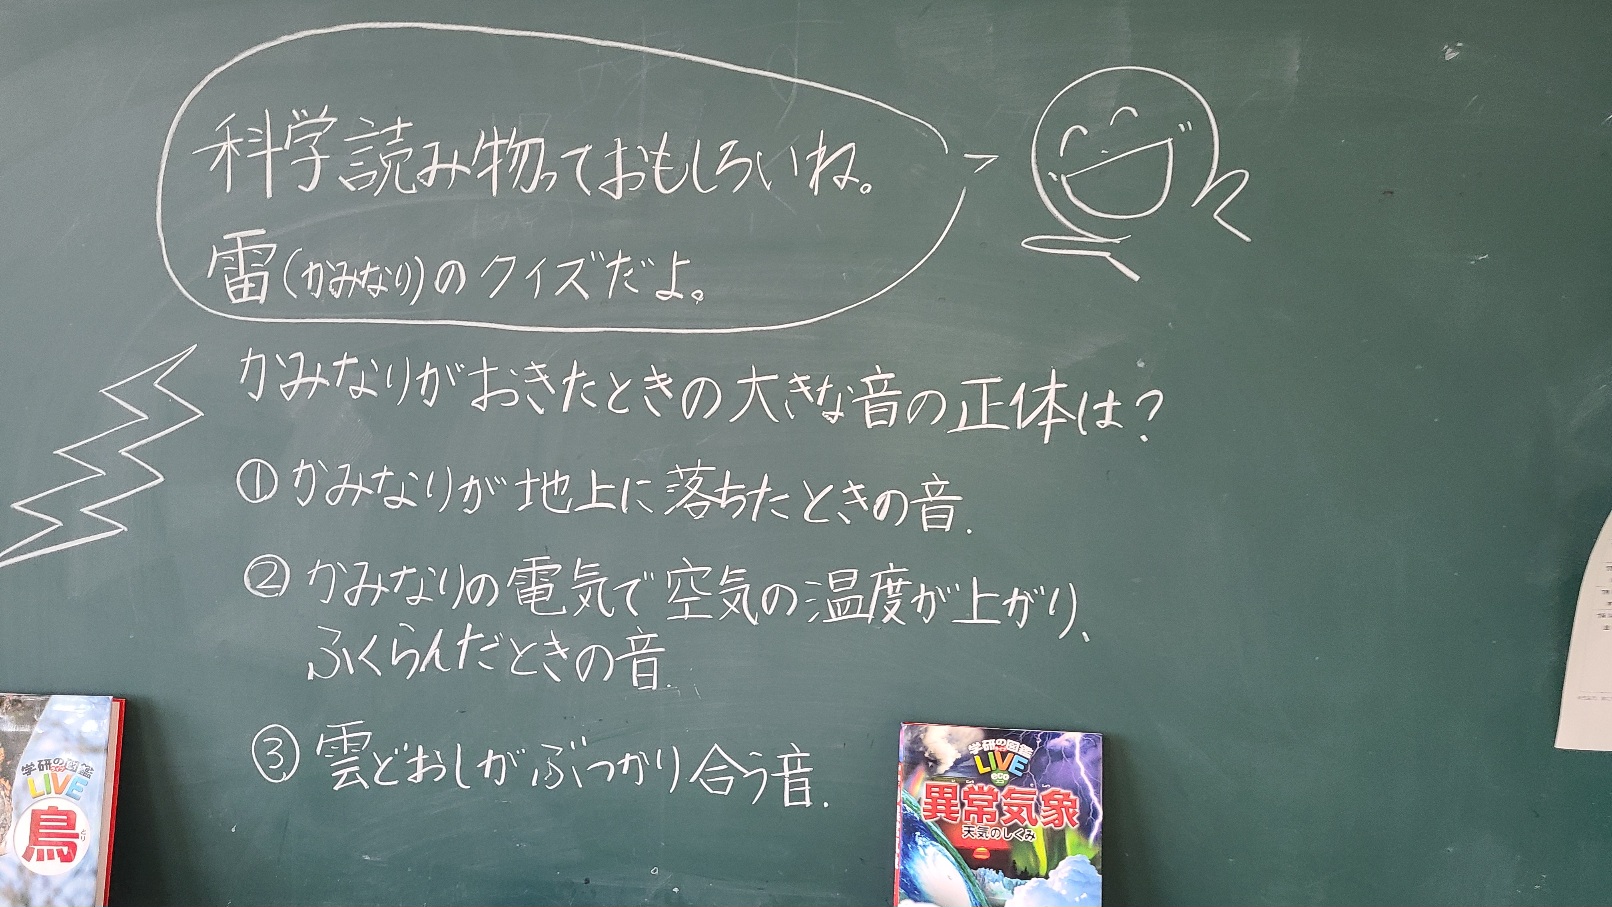 科学読み物っておもしろいね。
雷(かみなり)のクイズだよ。
かみなりがおきたときの大きな音の正体は?
①かみなりが地上に落ちたときの音.
②かみなりの電気で空気の温度が上がり、
ふくらんだときの音.
③雲どおしがぶつかり合う音.
学研の図鑑
LIVE
鳥
とり
学研の図鑑
LIVE
eco
異常気象
天気のしくみ